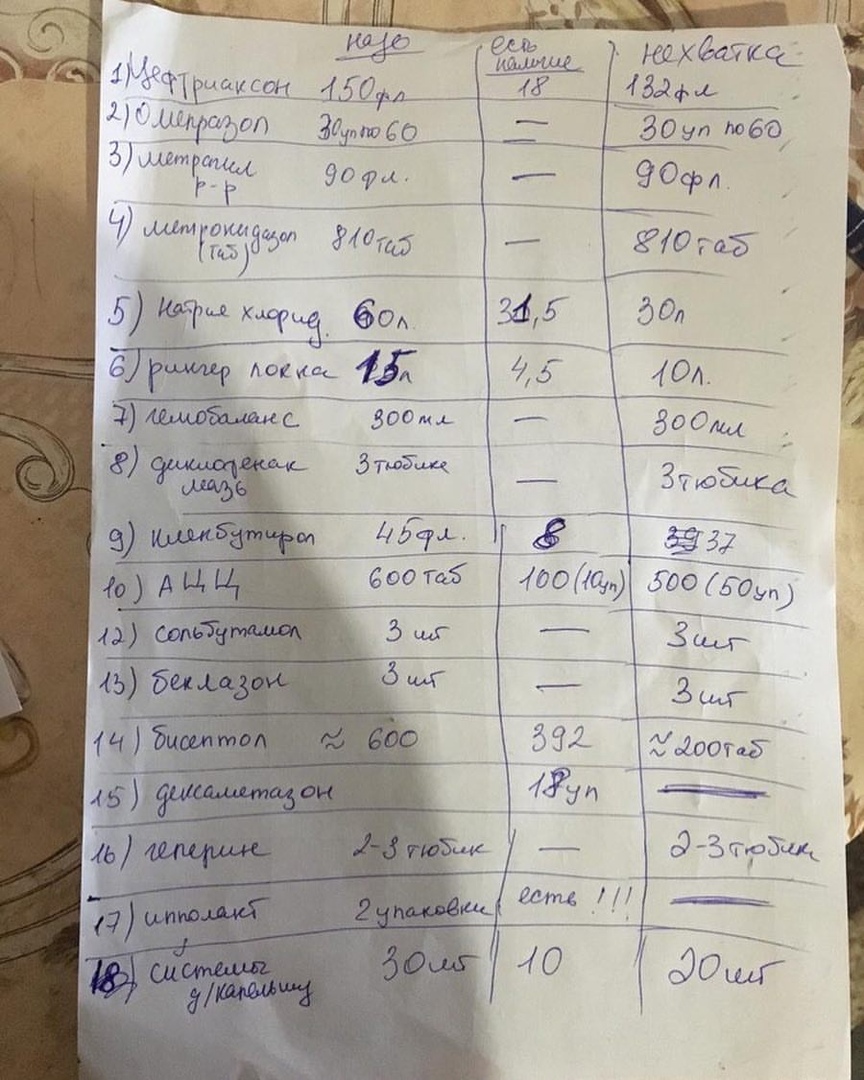 надо есть наличие нехватка
1) Цефтриаксон 150фл 18 132фл
2) Омепразол 30уп по 60 — 30уп по 60
3) метрогил р-р 90 фл. — 90фл.
4) метронидазол (таб) 810 таб — 810 таб
5) Натрие хлорид. 60л. 31,5 30л
6) рингер локка 15л 4,5 10л.
7) гемобаланс 300мл — 300мл
8) диклофенак мазь 3 тюбике — 3 тюбика
9) кленбутирол 45фл. 8 37
10) АЦЦ 600 таб 100 (10уп) 500 (50уп)
12) сольбутамол 3 шт — 3 шт
13) беклазон 3 шт — 3 шт
14) бисептол ≈ 600 392 ≈ 200 таб
15) дексаметазон 18 уп —
16) геперине 2-3 тюбик — 2-3 тюбик
17) ипполакт 2 упаковки есть !!! —
18) системы д/капельниц 30 шт 10 20 шт